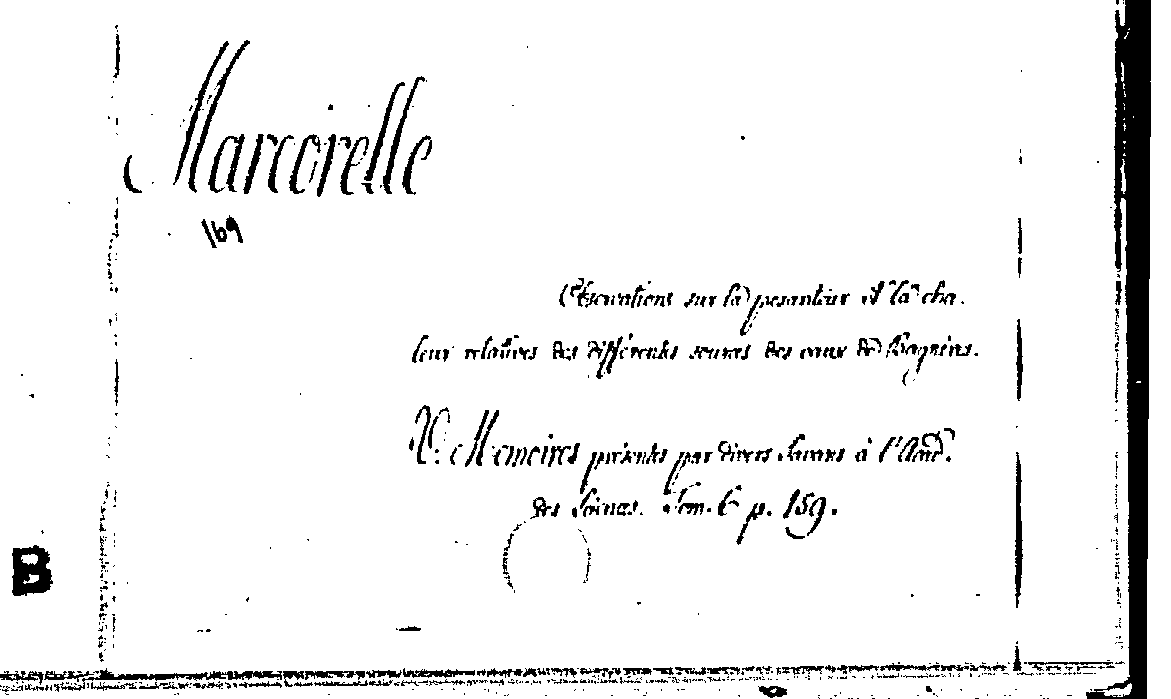 Marcorelle
169
Observations sur la pesanteur et la cha-
leur relatives des différentes sources des eaux de Bagnères.
V. Memoires présentés par divers Savans à l'Acad.
des Sciences. Tom. 6 p. 159.
B